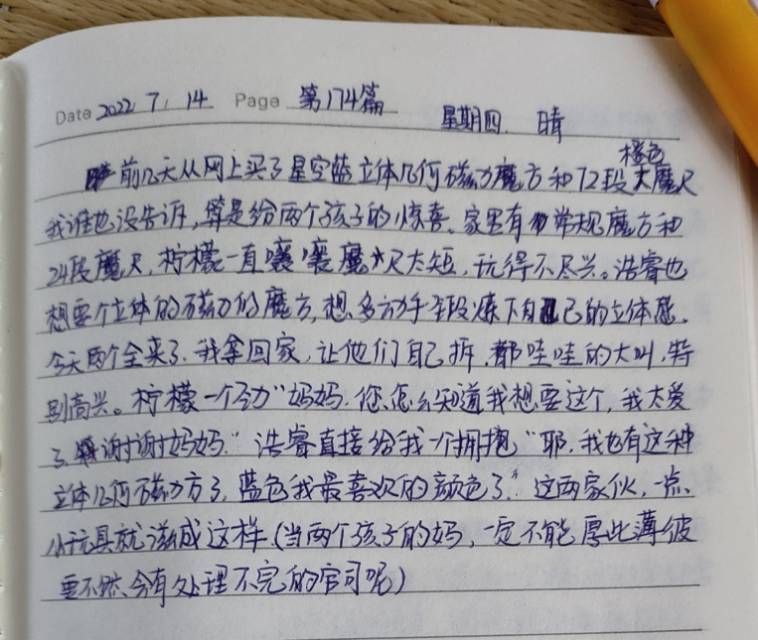 Date 2022 7 14 Page 第174篇
星期四. 晴
橙色
前几天从网上买了星空蓝立体几何磁力魔方和72段大魔尺
我谁也没告诉,算是给两个孩子的惊喜、家里有常规魔方和
24段魔尺,柠檬一直嚷嚷魔尺太短,玩得不尽兴。浩睿也
想要个立体的磁力的魔方,想多动手锻炼下自己的立体感.
今天两个全来了.我拿回家,让他们自己拆.都哇哇的大叫,特
别高兴。柠檬一个劲"妈妈.您怎么知道我想要这个,我太爱
了.谢谢妈妈."浩睿直接给我一个拥抱"耶.我也有这种
立体几何磁力方了,蓝色我最喜欢的颜色了"这两家伙,一点、
小玩具就滋成这样(当两个孩子的妈,一定不能厚此薄彼
要不然会有处理不完的官司呢)